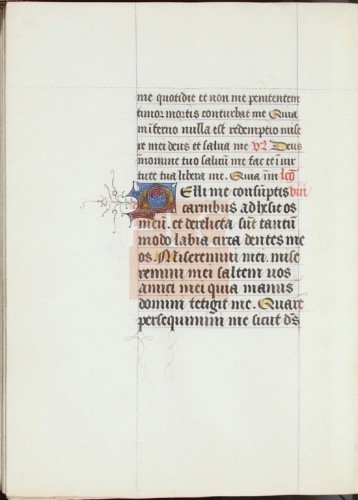 me quotidie et non me penitentem
timor mortis conturbat me Quia
in inferno nulla est redemptio mise
re mei deus et salva me v̄ Deus
in nomine tuo salvū me fac et in vir
tute tua libera me. Quia in īn lc̄o
Pelli me consūptis viii
carnibus adhesit os
meū. et derelicta sūt tantū
modo labia circa dentes me
os. Miseremini mei. mise
remini mei saltem vos
amici mei quia manus
domini tetigit me. Quare
persequimini me sicut dēs